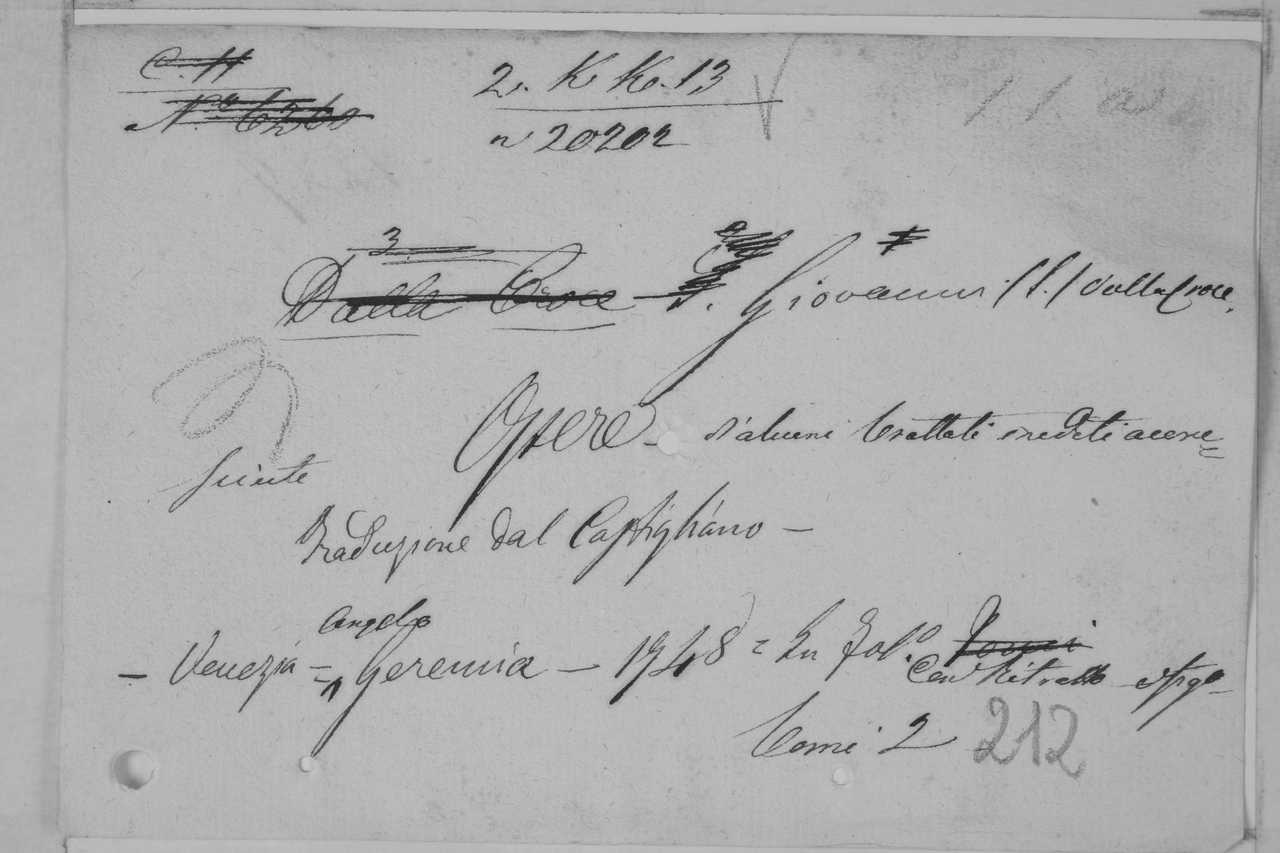 C. H
2. K K. 13
n 20202
3
Dalla Croce S. Giovanni (S.) dalla Croce.
Opere d'alcuni trattati inediti accre=
sciute
Traduzione dal Castigliano —
Angelo
— Venezia = Geremia — 1748 = In fol.º Tomi
Con Ritratto e
tomi 2
212